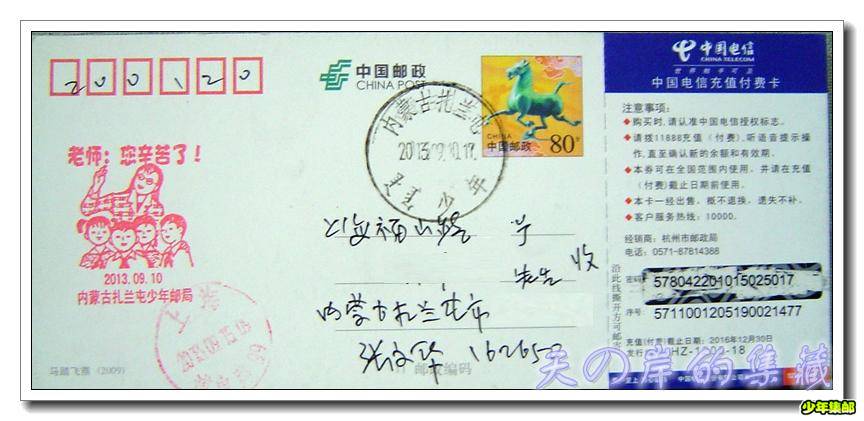 200120
中国邮政
CHINA POST
CHINA
中国邮政
80分
内蒙古扎兰屯
2013.09.10.17
少年
老师：您辛苦了！
2013.09.10
内蒙古扎兰屯少年邮局
上海
上海福山路
收
内蒙古扎兰屯市
162650
邮政编码
马踏飞燕 (2009)
中国电信
CHINA TELECOM
世界触手可及
中国电信充值付费卡
注意事项：
◆购买时，请认准中国电信授权标志。
◆请拨11888充值（付费），听语音提示操作，
直至确认新的余额和有效期。
◆本券可在全国范围内使用，并请在充值
（付费）截止日期前使用。
◆本卡一经出售，概不退换，遗失不补。
◆客户服务热线：10000。
经销商：杭州市邮政局
电话：0571-87814388
沿此线撕开方可邮寄
密码：
578042201015025017
序号：
5711001205190021477
充值(付费)截止日期：2016年12月30日
天の岸的集藏
少年集邮